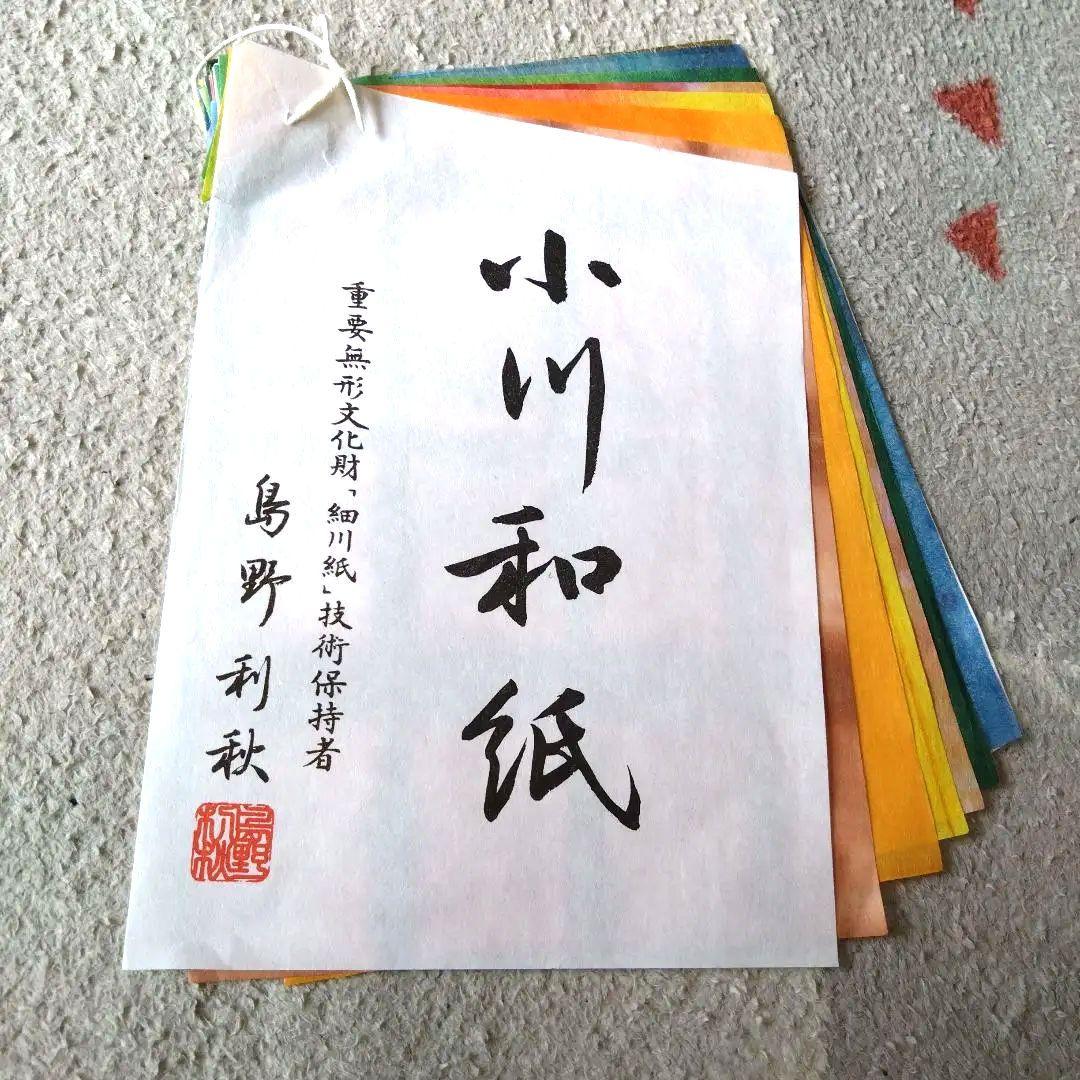 小川和紙
重要無形文化財「細川紙」技術保持者
島野利秋